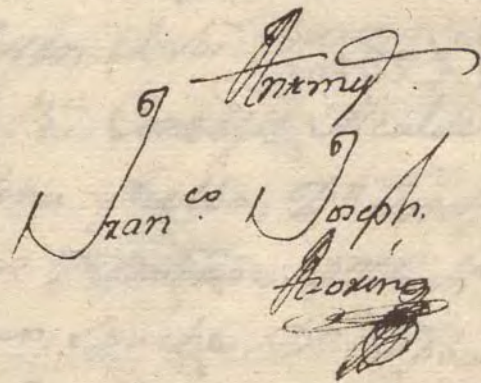 Antemy.
Fran.co Joseph.
Azorin